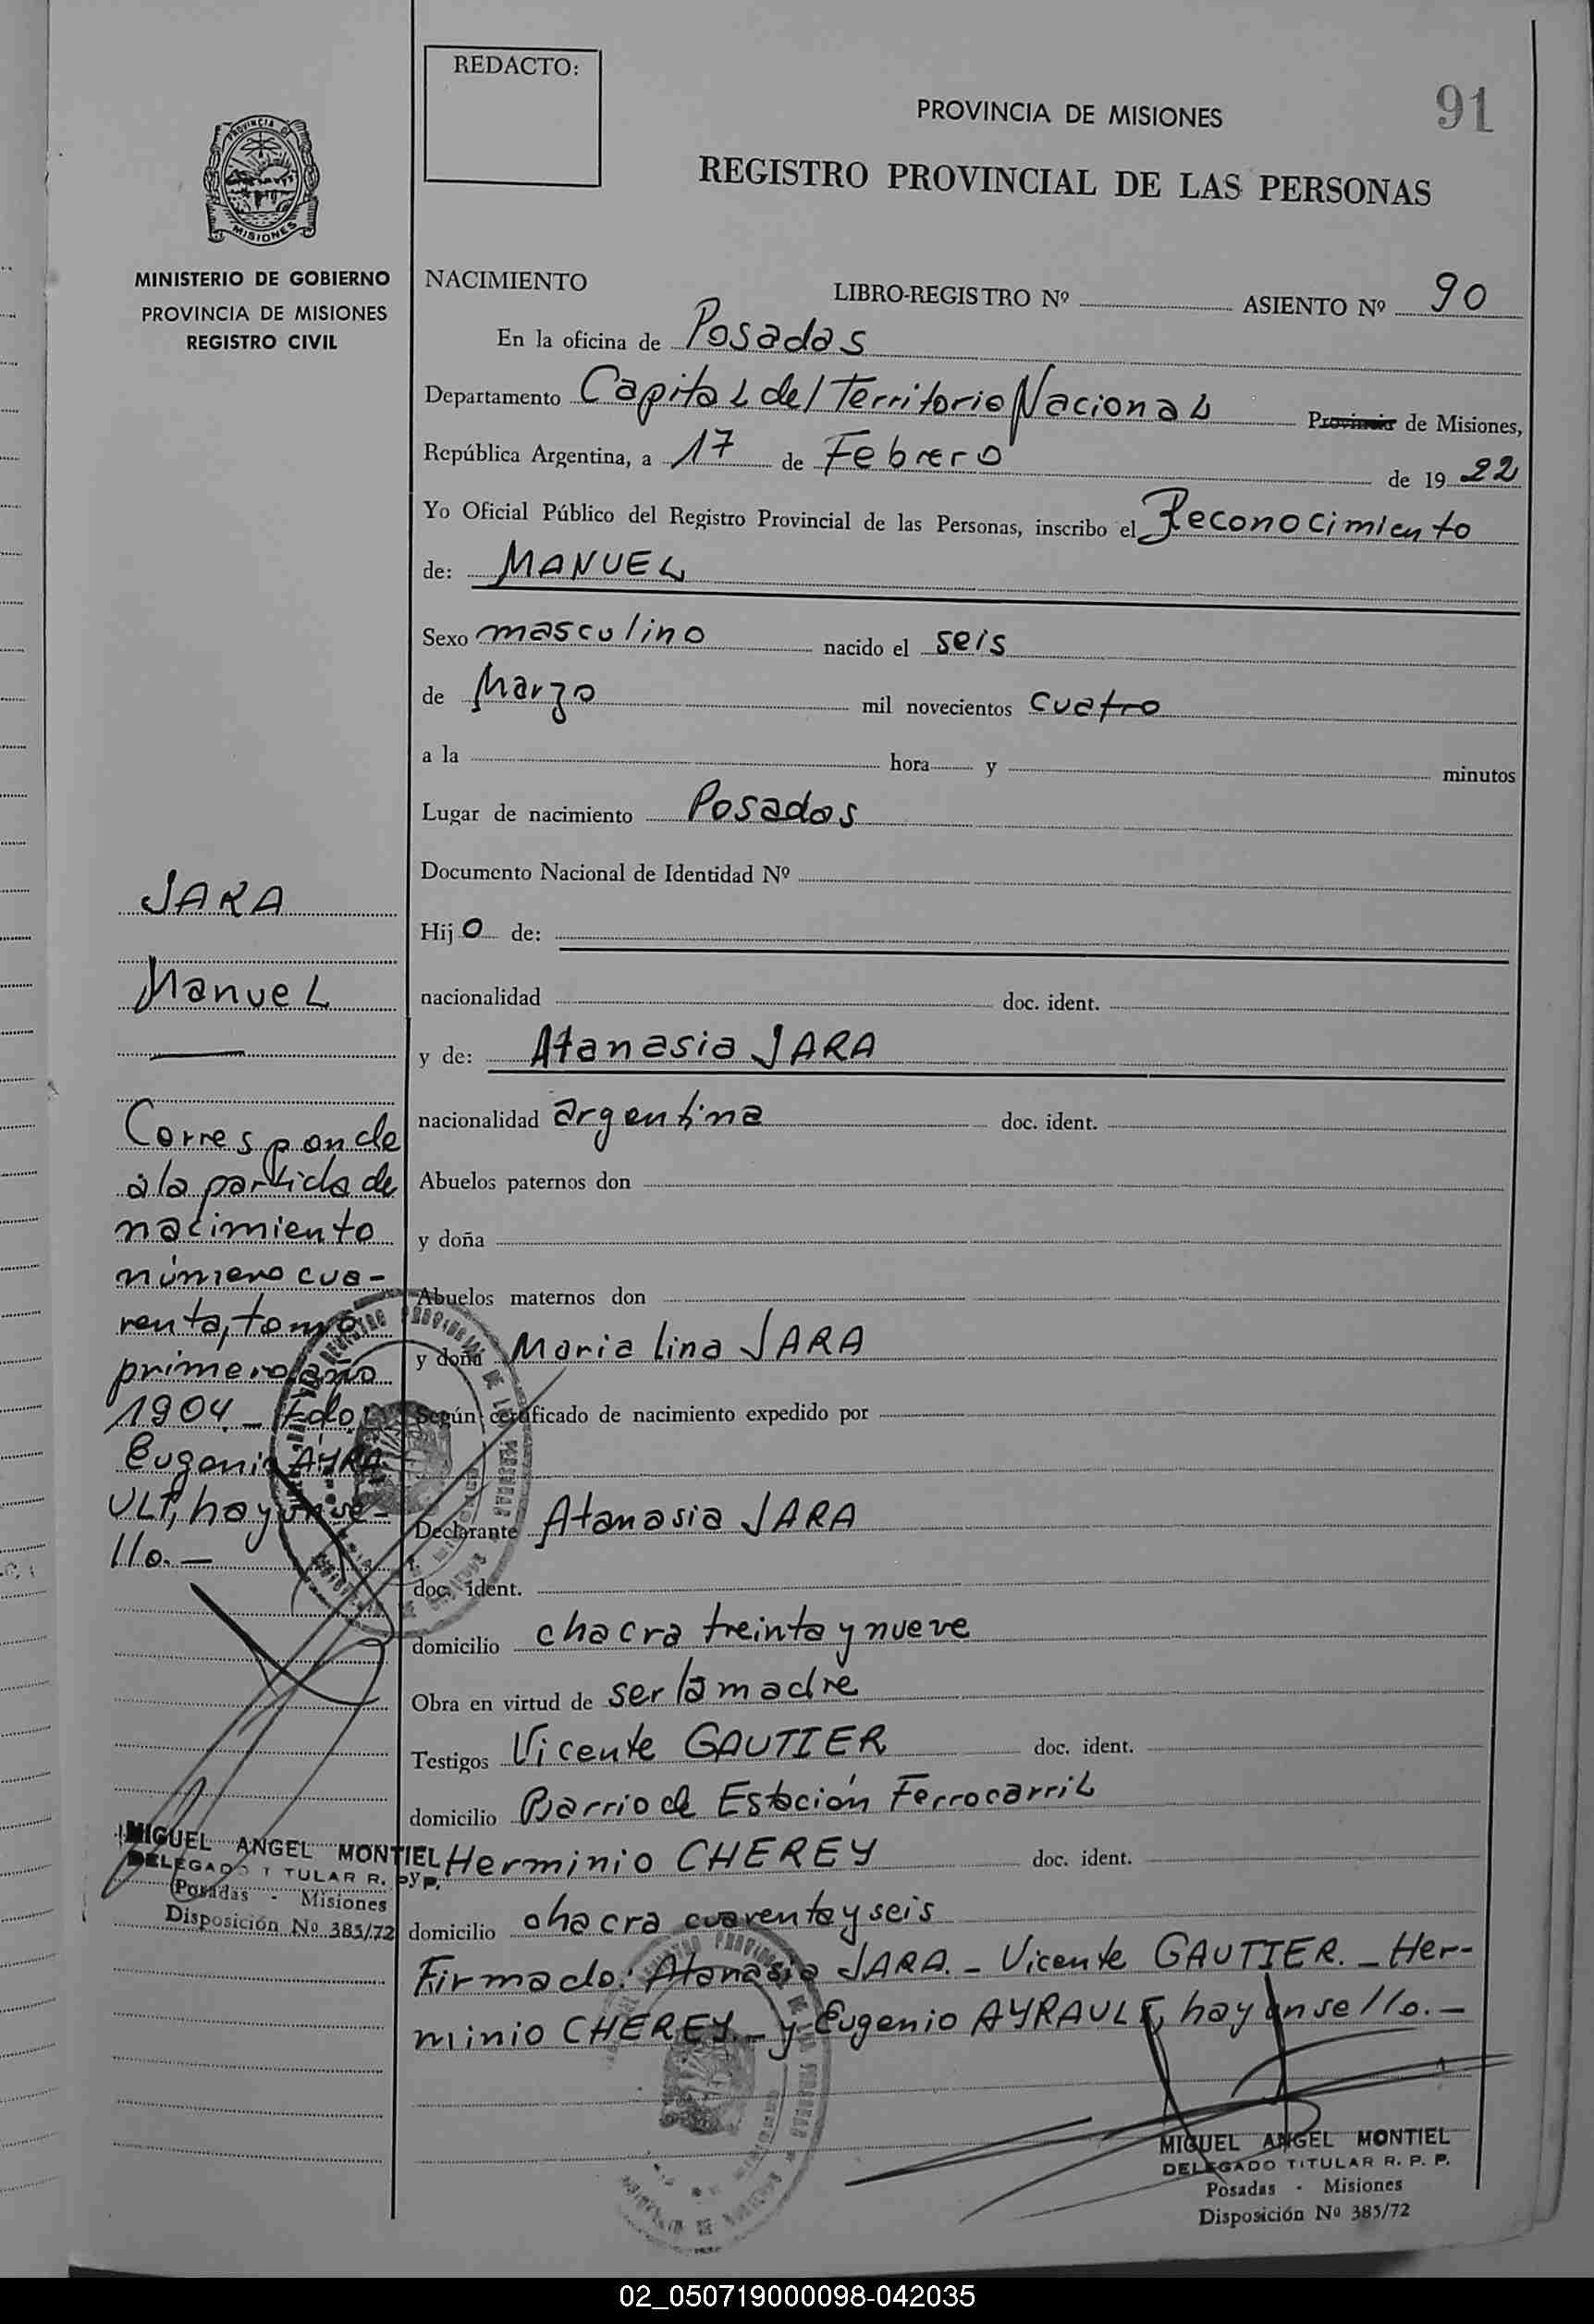 REDACTO:
91
PROVINCIA DE MISIONES
REGISTRO PROVINCIAL DE LAS PERSONAS
PROVINCIA DE
MISIONES
MINISTERIO DE GOBIERNO
PROVINCIA DE MISIONES
REGISTRO CIVIL
NACIMIENTO
LIBRO-REGISTRO Nº ASIENTO Nº 90
En la oficina de Posadas
Departamento Capital del Territorio Nacional Provincia de Misiones,
República Argentina, a 17 de Febrero de 1922
Yo Oficial Público del Registro Provincial de las Personas, inscribo el Reconocimiento
de: MANUEL
Sexo masculino nacido el seis
de Marzo mil novecientos cuatro
a la hora y minutos
Lugar de nacimiento Posadas
Documento Nacional de Identidad Nº
Hijo de:
nacionalidad doc. ident.
y de: Atanasia JARA
nacionalidad argentina doc. ident.
Abuelos paternos don
y doña
Abuelos maternos don
y doña Maria lina JARA
Según certificado de nacimiento expedido por
Declarante Atanasia JARA
doc. ident.
domicilio chacra treinta y nueve
Obra en virtud de ser la madre
Testigos Vicente GAUTIER doc. ident.
domicilio Barrio de Estación Ferrocarril
y Herminio CHEREY doc. ident.
domicilio chacra cuarenta y seis
Firmado: Atanasia JARA.- Vicente GAUTIER.- Her-
minio CHEREY.- y Eugenio AYRAULT, hay un sello.-
MIGUEL ANGEL MONTIEL
DELEGADO TITULAR R. P. P.
Posadas - Misiones
Disposición Nº 385/72
JARA
Manuel
Corresponde
a la partida de
nacimiento
número cua-
renta, tomo
primero año
1904.- Fdo:
Eugenio AYRA
ULT, hay un se-
llo.-
MIGUEL ANGEL MONTIEL
DELEGADO TITULAR R. P. P.
Posadas - Misiones
Disposición Nº 385/72
02_050719000098-042035